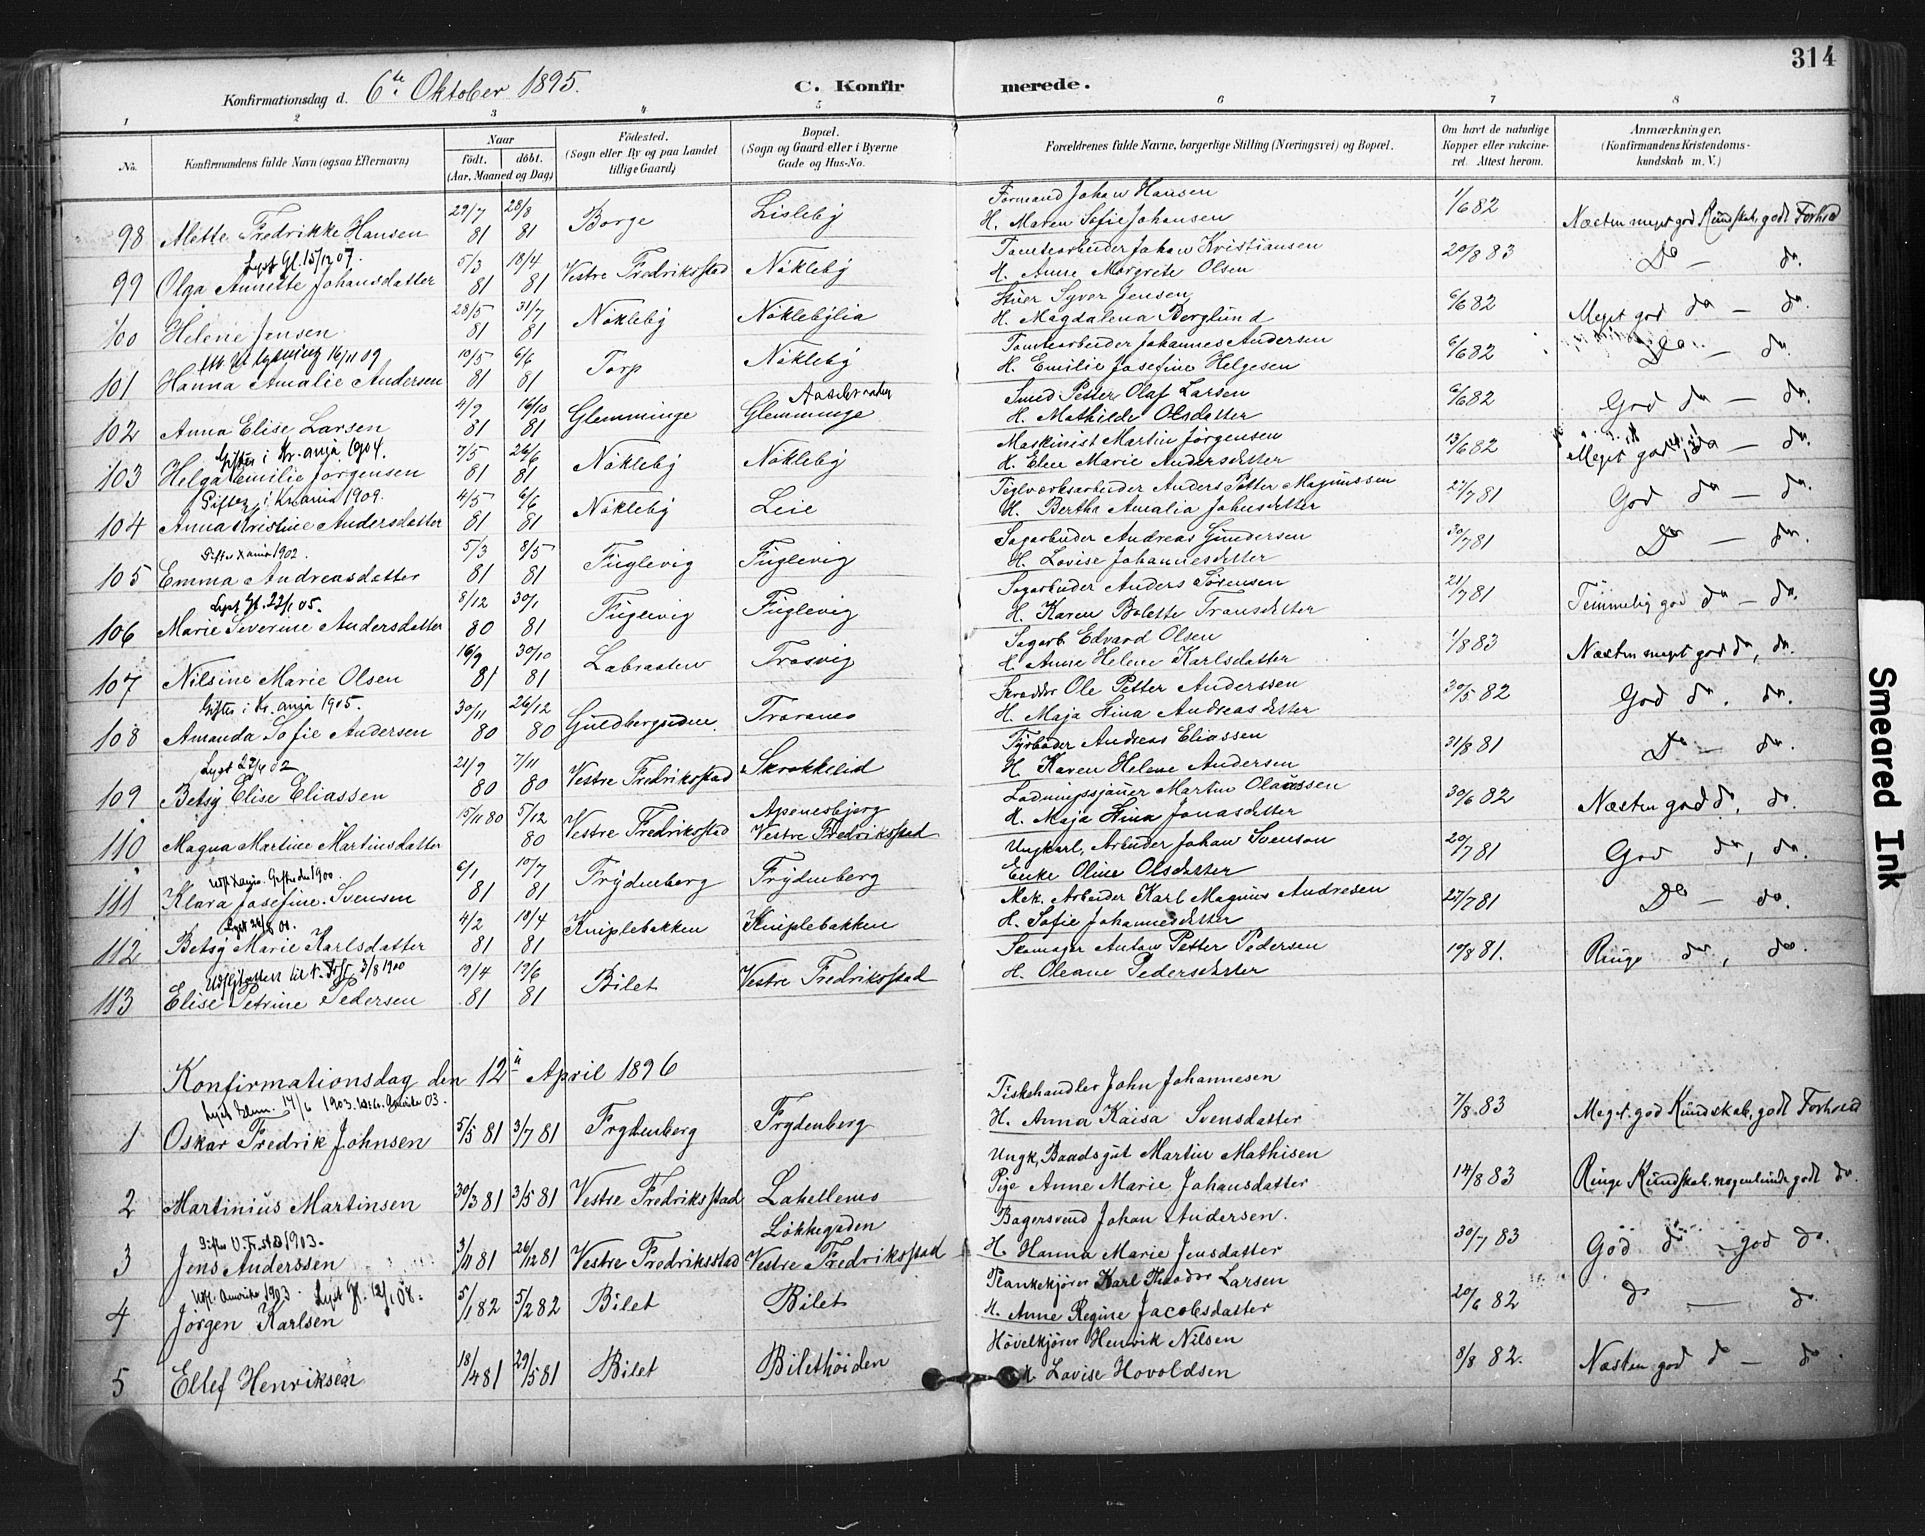 314
Konfirmationsdag d. 6te Oktober 1895. C. Konfirmerede.
1 2 3 4 5 6 7 8
No. Konfirmandens fulde Navn (ogsaa Efternavn) Naar født. døbt. (Aar, Maaned og Dag) Fødested. (Sogn eller By og paa Landet tillige Gaard) Bopæl. (Sogn og Gaard eller i Byerne Gade og Hus-No. Forældrenes fulde Navne, borgerlige Stilling (Næringsvei) og Bopæl. Om havt de naturlige Kopper eller vakcineret. Attest herom. Anmærkninger. (Konfirmandens Kristendomskundskab m. V.)
98 Mette Fredrikke Hansen 29/7 81 28/8 81 Borge Lisleby Formand Johan Hansen
H. Maren Sofie Johansen 1/6 82 Næsten meget god Kundskab, godt Forhold
Lyst Gl. 15/12 07.
99 Olga Annette Johansdatter 5/3 81 18/4 81 Vestre Fredriksstad Nøkleby Tomtearbeider Johan Kristiansen
H. Anne Margrete Olsen 20/8 83 Do — do.
100 Helene Jensen 28/5 81 31/7 81 Nøkleby Nøklebylia Stuer Syver Jensen
H. Magdalena Berglund 6/6 82 Meget god do — do.
16/11 09
101 Hanna Amalie Andersen 10/5 81 6/6 81 Torp Nøkleby Tomtearbeider Johannes Andersen
H. Emilie Josefine Helgesen 6/6 82 Do. — do.
102 Anna Elise Larsen 4/9 81 16/10 81 Glemminge Glemminge Smed Petter Olaf Larsen
H. Mathilde Olsdatter 6/6 82 God do — do.
Giftes i Kr.ania 1904.
103 Helga Emilie Jørgensen 7/5 81 26/6 81 Nøkleby Nøkleby Maskinist Martin Jørgensen
H. Elen Marie Andersdatter 13/6 82 Meget god, do — do.
Giftes i Kr.ania 1909.
104 Anna Kristine Andersdatter 4/5 81 6/6 81 Nøkleby Leie Teglværksarbeider Anders Petter Magnussen
H. Berthe Amalia Johnsdatter 27/7 81 God do — do.
Giftes Xania 1902.
105 Emma Andreasdatter 5/3 81 8/5 81 Fuglevig Fuglevig Sagarbeider Andreas Gundersen
H. Lovise Johannesdatter 30/7 81 Do — do.
Lyst Gl. 22/1 05.
106 Marie Severine Andersdatter 8/12 80 30/1 81 Fuglevig Fuglevig Sagarbeider Anders Sørensen
H. Karen Bolette Fransdatter 21/7 81 Temmelig god do — do.
107 Nilsine Marie Olsen 16/9 81 30/10 81 Labraaten Trosvig Sagarb. Edvard Olsen
H. Anne Helene Karlsdatter 1/8 83 Næsten meget god do, do.
Giftes i Kr.ania 1905.
108 Amanda Sofie Andersen 30/11 80 26/12 80 Guldbergsdene Traranes Skrædder Ole Petter Anderssen
H. Maja Stina Andreasdatter 30/5 82 God do. do.
Lyst 02
109 Betsy Elise Eliassen 21/9 80 7/11 80 Vestre Fredriksstad Skrokkelid Fyrbøder Andreas Eliassen
H. Karen Helene Andersen 31/8 81 Do — do.
110 Magna Martine Martinusdatter 15/11 80 5/12 80 Vestre Fredriksstad Apenesbjerg
Vestre Fredriksstad Ladningssjauer Martin Olaussen
H. Maja Stina Jonasdatter 30/6 82 Næsten god do, do.
Giftes 1900.
111 Klara Josefine Svensen 6/1 81 10/7 81 Frydenberg Frydenberg Ungkarl, Arbeider Johan Svenson
Enke Oline Olsdatter 20/7 81 God do, do.
112 Betsy Marie Karlsdatter 4/2 81 18/4 81 Kniplebakken Kniplebakken Mek. Arbeider Karl Magnus Andresen
H. Sofie Johannesdatter 27/7 81 Do — do.
Udflyttet til 3/8 1900
113 Elise Petrine Pedersen 19/4 81 19/6 81 Bilet Vestre Fredriksstad Skomager Anton Petter Pedersen
H. Oleane Pedersdatter 19/8 81. Ringe do, do.
Konfirmationsdag den 12te April 1896
Lyst Glem. 17/6 1903. Amerika 03.
1 Oskar Fredrik Johnsen 5/5 81 3/7 81 Frydenberg Frydenberg Fiskehandler John Johannesen
H. Anna Kaisa Svensdatter 7/8 83 Meget god Kundskab, godt Forhold
2 Martinius Martinsen 30/3 81 3/5 81 Vestre Fredriksstad Lahellenes Ungk, Baadsgut Martin Mathisen
Pige Anne Marie Johansdatter 14/8 83 Ringe Kundskab, nogenlunde godt do.
Giftes V. Fr.stad 1903.
3 Jens Anderssen 3/11 81 26/12 81 Vestre Fredriksstad Løkkegaden
Vestre Fredriksstad Bagersvend Johan Andersen.
H. Hanna Marie Jensdatter 30/7 83 God do — god do.
Utfl. Amerika 1903. Lyst Gl. 12/1 08.
4 Jørgen Karlsen 5/1 82 5/2 82 Bilet Bilet Plankekjører Karl Theodor Larsen
H. Anne Regine Jacobsdatter 20/6 82 do — do.
5 Ellef Henriksen 18/4 81 29/5 81 Bilet Bilethøiden Høvelkjører Henrik Nilsen
H. Lovise Hovoldsen 8/8 82. Næsten god do — do.
Smeared Ink